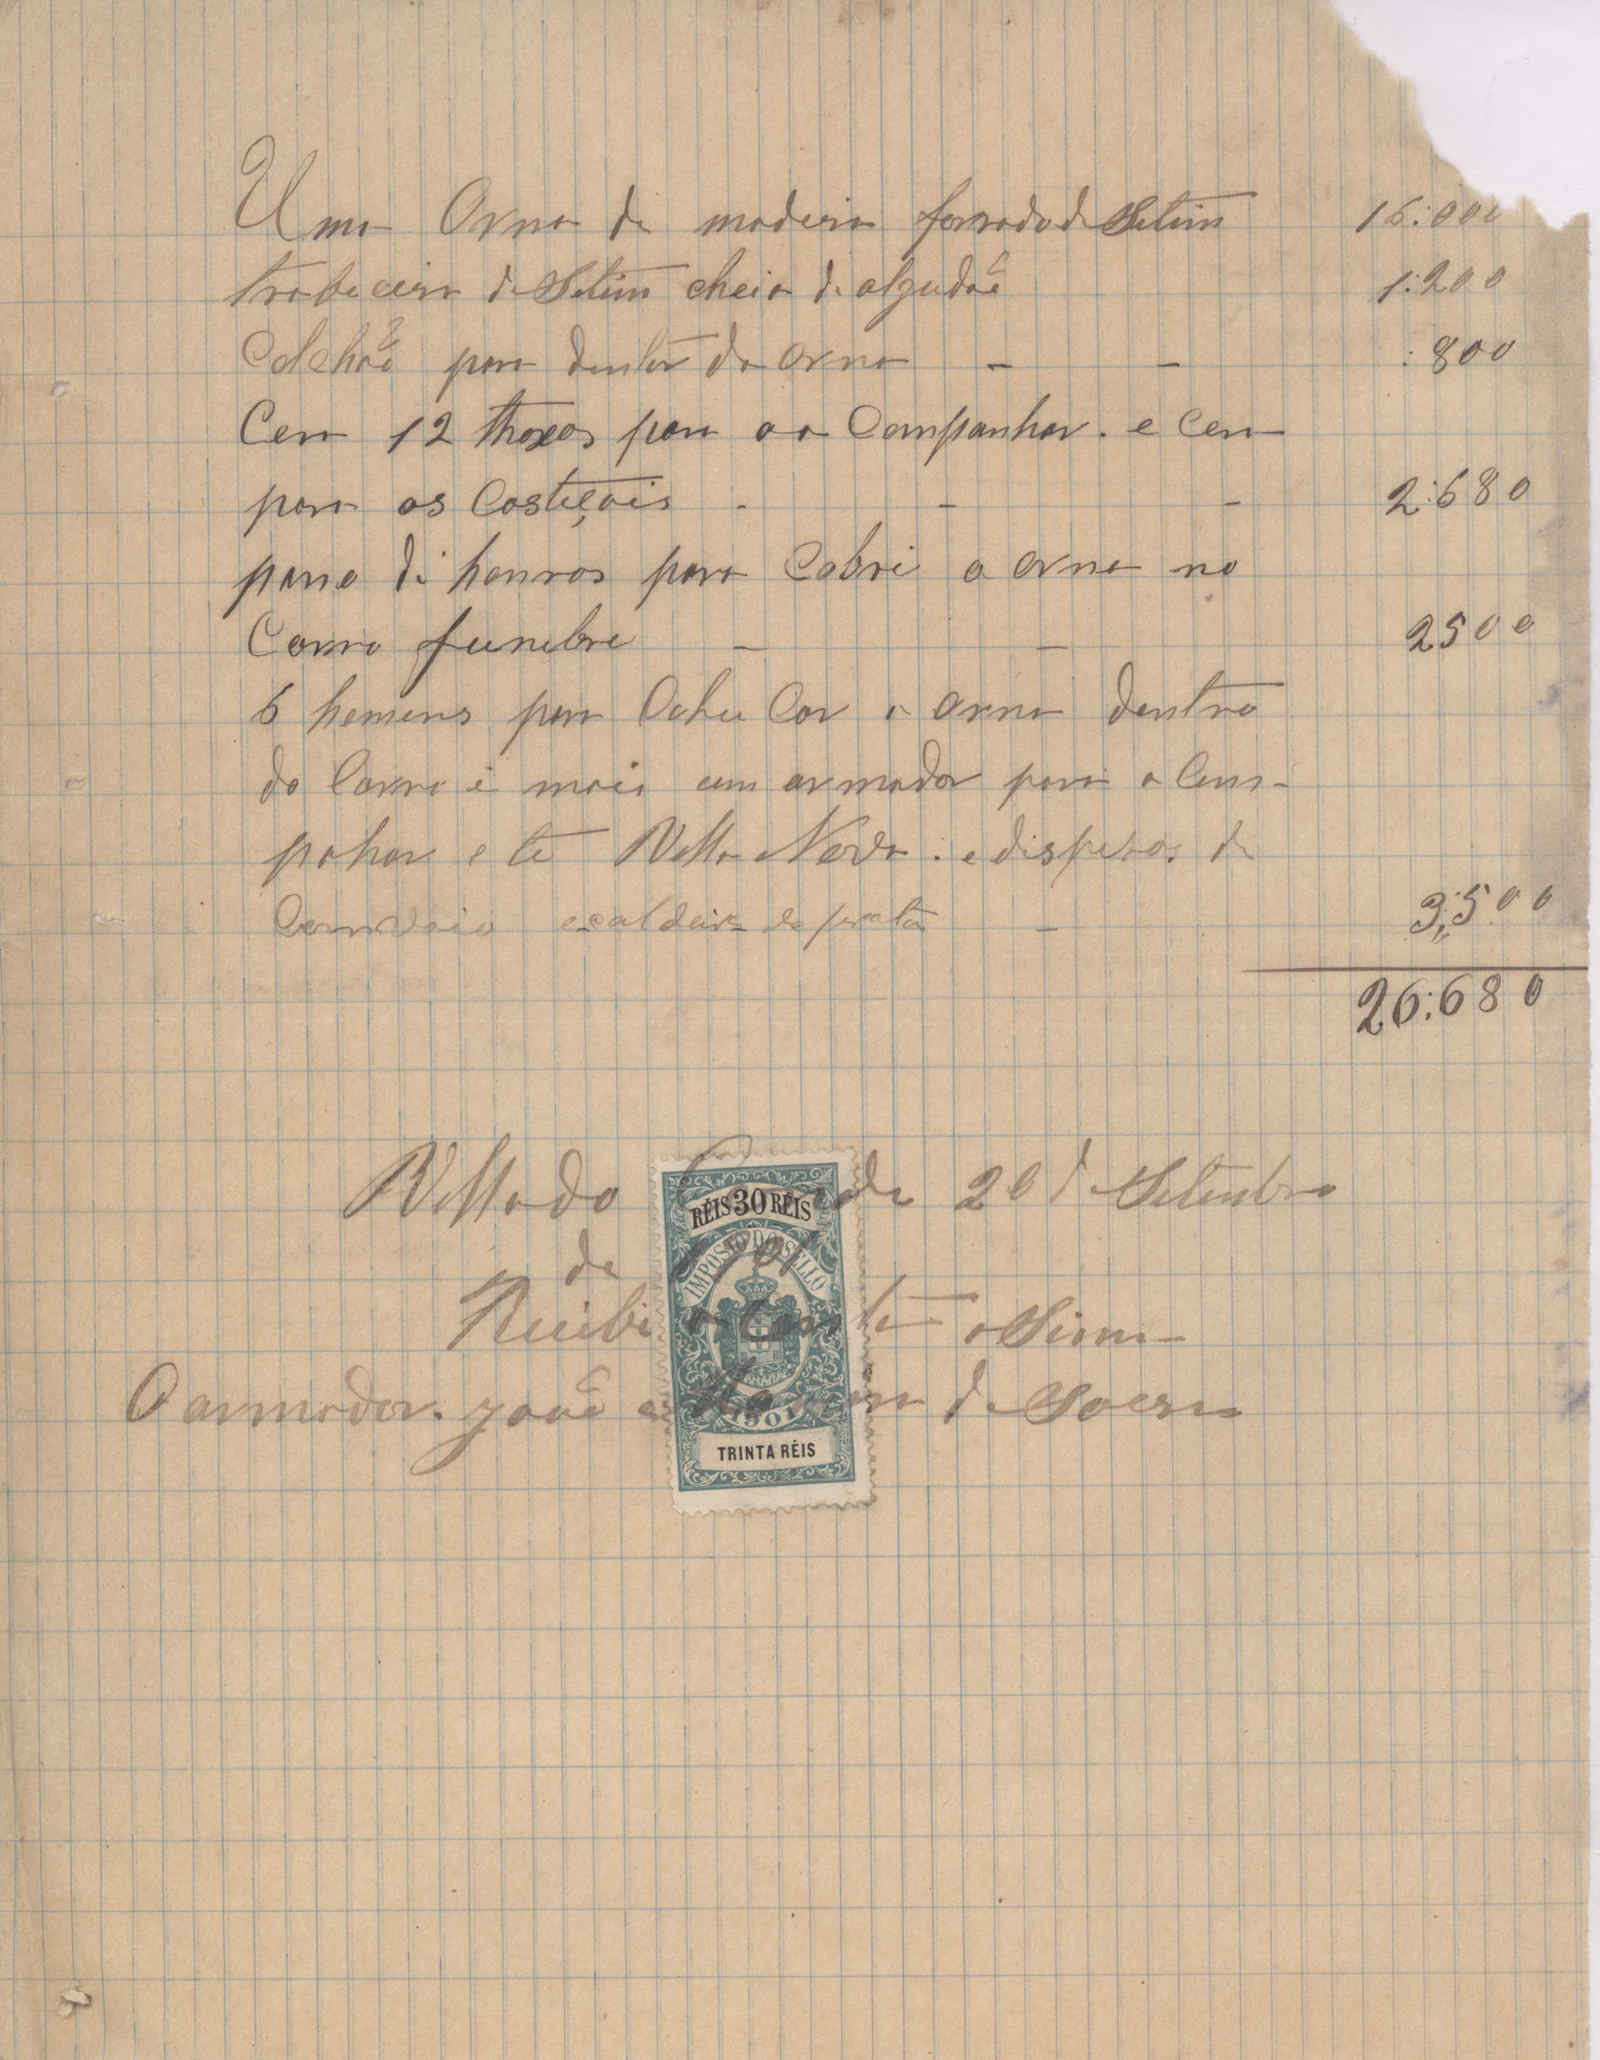 Uma Orna de madeira forrado d Setim 16:000
trabeceira de Setim cheia de algudaõ 1:200
Colchaõ para dentor da orna - - :800
Cera 12 thoxas para ao a Companhar. e Cera
para os Casteçais - - - 2:680
pano di honras para Cobri a orna no
Carro funebre - - 2500
6 homens para Colu Car a orna dentro
do Carro i mais um armador para a Com-
pahar e te Villa Nova: e dispezas de
Comvoio ecaldeira de prata - 3:500
26:680
Villa do Conde 20 d Setembro
de 1901
Recibi a Conta asima
O armador. joaõ de Soisa
RÉIS 30 RÉIS
IMPOSTO DO SELLO
1901
TRINTA RÉIS